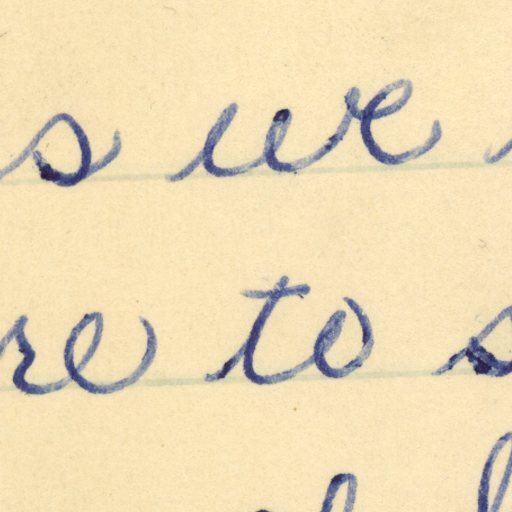 s we
re to s